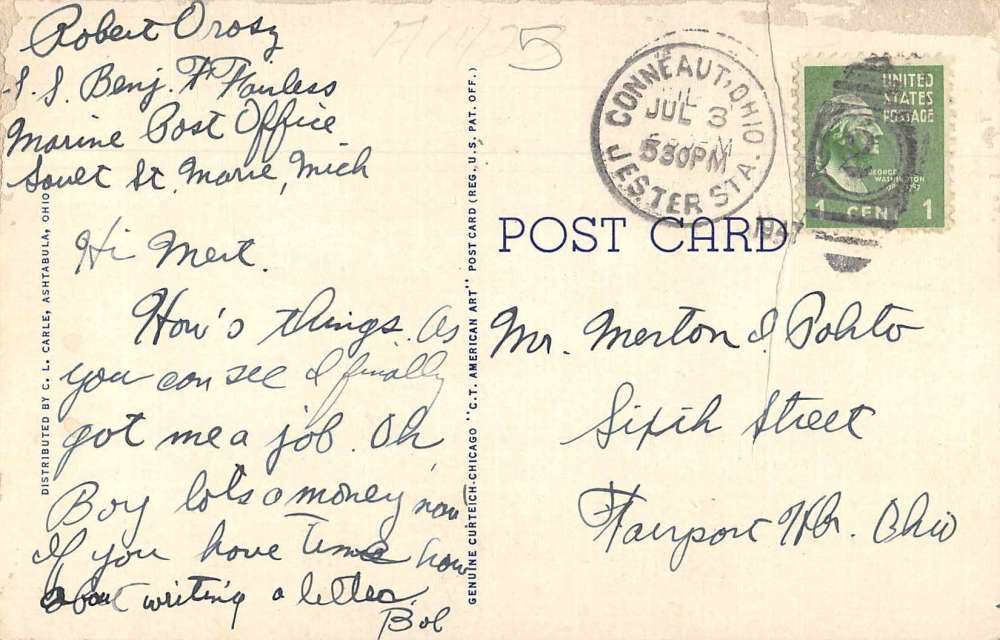 Robert Orosz
S.S. Benj. F Fairless
Marine Post Office
Souet St. Marie, Mich
Hi Mert.
How's things. As
you can see I finally
got me a job. Oh
Boy lots a money now
If you have time how
about writing a letter.
Bob
DISTRIBUTED BY C. L. CARLE, ASHTABULA, OHIO
GENUINE CURTEICH-CHICAGO "C.T. AMERICAN ART" POST CARD (REG. U.S. PAT. OFF.)
5
CONNEAUT, OHIO
JUL 3
530PM
JESTER STA.
1947
UNITED
STATES
POSTAGE
GEORGE
WASHINGTON
1 CENT 1
POST CARD
Mr. Merton I. Pohto
Sixth Street
Fairport Hbr. Ohio